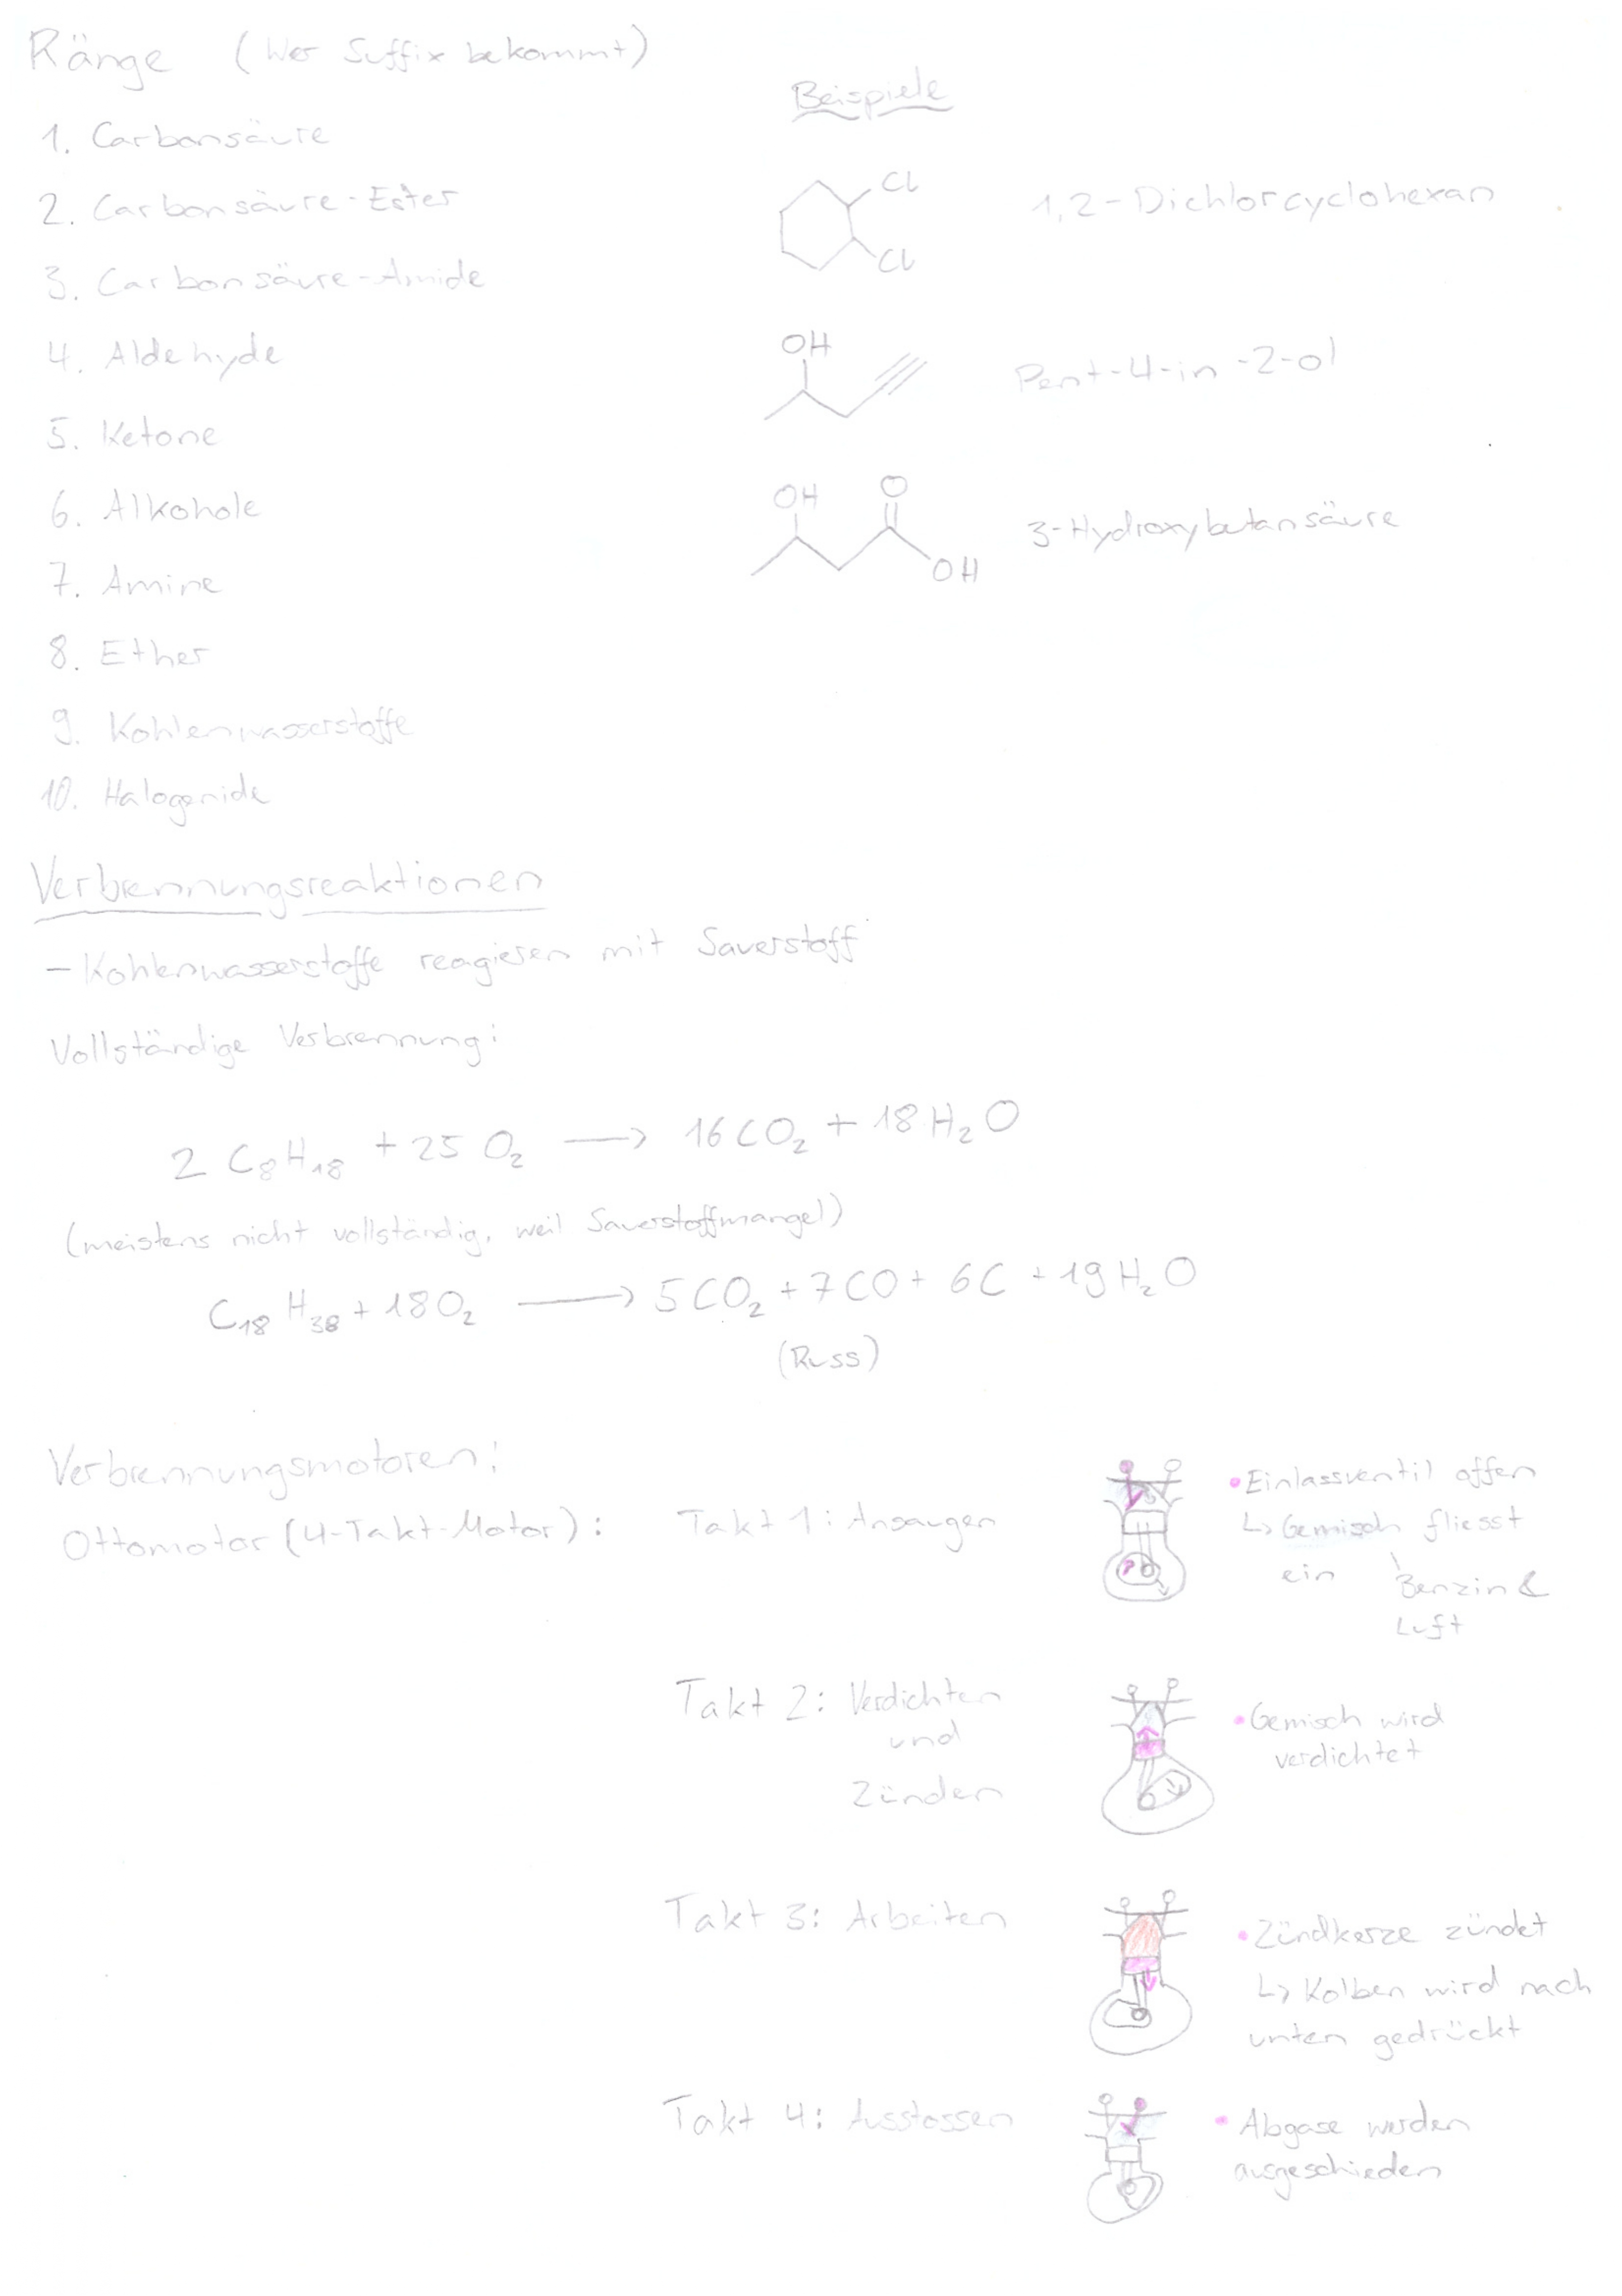 Ränge (Wer Suffix bekommt)
1. Carbonsäure
2. Carbonsäure-Ester
3. Carbonsäure-Amide
4. Aldehyde
5. Ketone
6. Alkohole
7. Amine
8. Ether
9. Kohlenwasserstoffe
10. Halogenide
Beispiele
Cl
Cl
1,2-Dichlorcyclohexan
OH
Pent-4-in-2-ol
OH O
OH
3-Hydroxybutansäure
Verbrennungsreaktionen
- Kohlenwasserstoffe reagieren mit Sauerstoff
Vollständige Verbrennung:
2 C₈H₁₈ + 25 O₂ → 16 CO₂ + 18 H₂O
(meistens nicht vollständig, weil Sauerstoffmangel)
C₁₈H₃₈ + 18 O₂ → 5 CO₂ + 7 CO + 6 C + 19 H₂O
(Russ)
Verbrennungsmotoren:
Ottomotor (4-Takt-Motor):
Takt 1: Ansaugen
• Einlassventil offen
↳ Gemisch fliesst
ein
Benzin &
Luft
Takt 2: Verdichten
und
Zünden
• Gemisch wird
verdichtet
Takt 3: Arbeiten
• Zündkerze zündet
↳ Kolben wird nach
unten gedrückt
Takt 4: Ausstossen
• Abgase werden
ausgeschieden